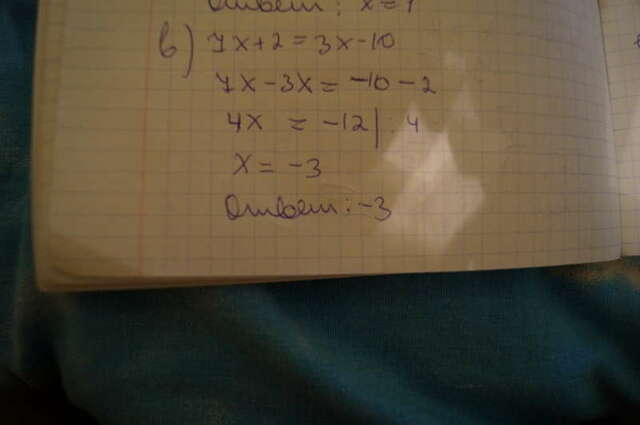 Ответ: x = 1
в) 7x+2=3x-10
7x-3x=-10-2
4x = -12 | :4
x = -3
Ответ: -3